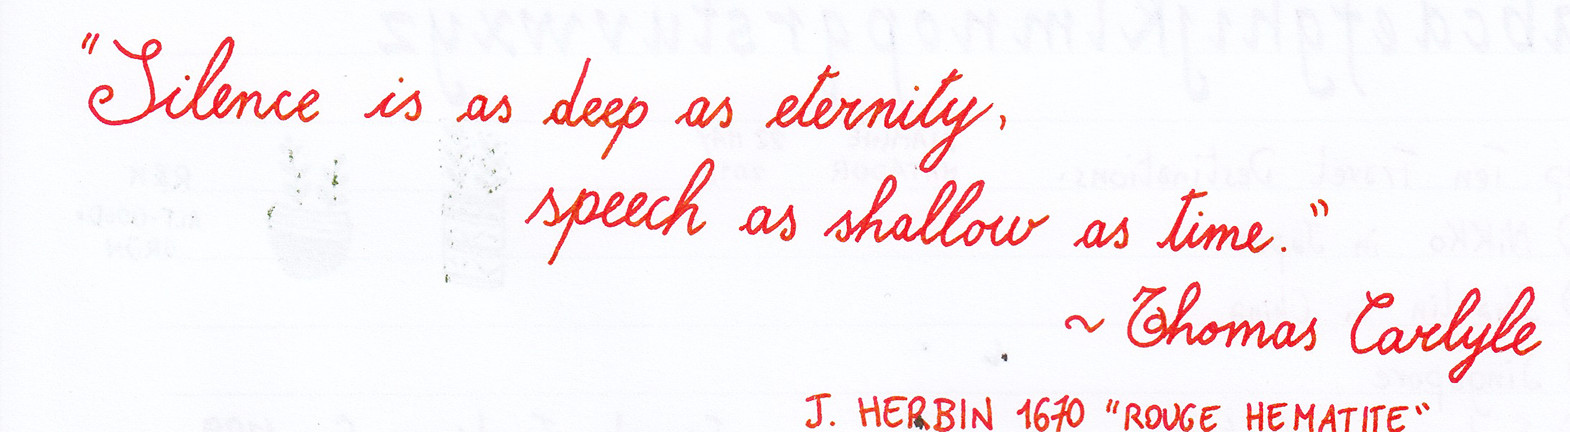 "Silence is as deep as eternity,
speech as shallow as time."
~ Thomas Carlyle
J. HERBIN 1670 "ROUGE HEMATITE"